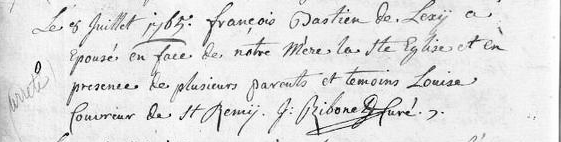 Le 8 Juillet 1765. françois Bastien de Lexij a
Epousé en face de nôtre Mère la Ste Eglise et en
presence de plusieurs parents et temoins Louise
Couvreur de St Remij. J: Ribone Curé.